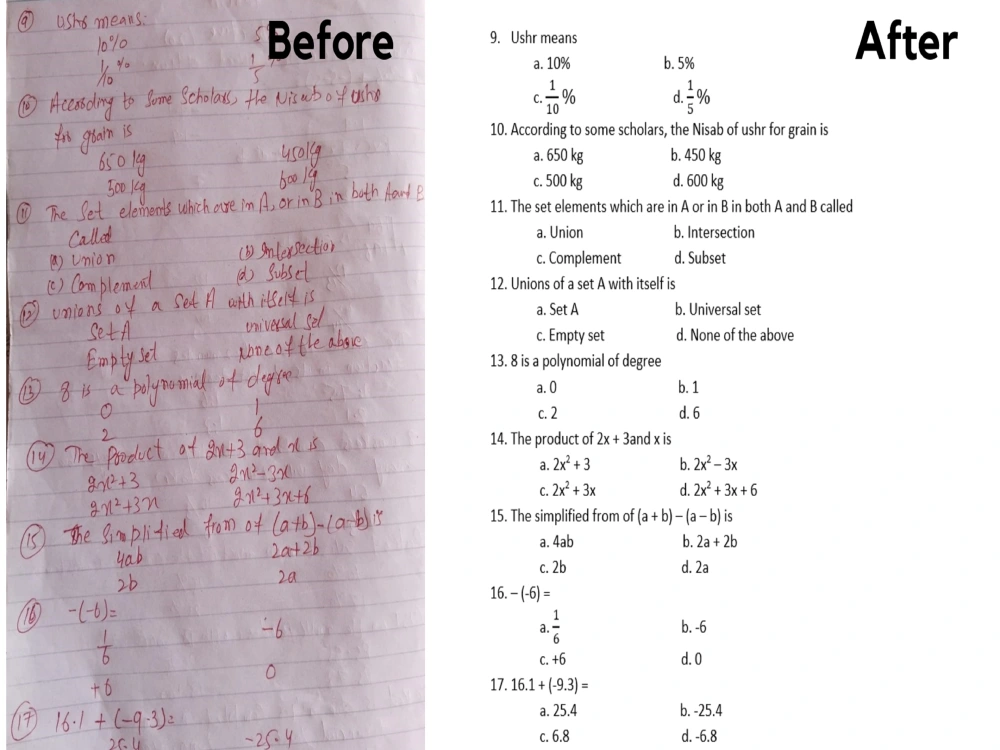 Before
9 Ushr means:
10% 5%
1/10 % 1/5
10 According to Some Scholars, the Nisab of Ushr
for grain is
650 kg 450kg
500 kg 600 kg
11 The Set elements which are in A, or in B in both A and B
Called
(a) Union (b) Intersection
(c) Complement (d) Subset
12 unions of a Set A with itself is
Set A universal Set
Empty set None of the above
13 8 is a polynomial of degree
0 1
2 6
14 The product of 2x+3 and x is
2x²+3 2x²-3x
2x²+3x 2x²+3x+6
15 The Simplified from of (a+b)-(a-b) is
4ab 2a+2b
2b 2a
16 -(-6)=
1/6 -6
+6 0
17 16.1 + (-9.3)=
25.4 -25.4
After
9. Ushr means
a. 10% b. 5%
c. 1/10 % d. 1/5 %
10. According to some scholars, the Nisab of ushr for grain is
a. 650 kg b. 450 kg
c. 500 kg d. 600 kg
11. The set elements which are in A or in B in both A and B called
a. Union b. Intersection
c. Complement d. Subset
12. Unions of a set A with itself is
a. Set A b. Universal set
c. Empty set d. None of the above
13. 8 is a polynomial of degree
a. 0 b. 1
c. 2 d. 6
14. The product of 2x + 3and x is
a. 2x² + 3 b. 2x² – 3x
c. 2x² + 3x d. 2x² + 3x + 6
15. The simplified from of (a + b) – (a – b) is
a. 4ab b. 2a + 2b
c. 2b d. 2a
16. – (-6) =
a. 1/6 b. -6
c. +6 d. 0
17. 16.1 + (-9.3) =
a. 25.4 b. -25.4
c. 6.8 d. -6.8